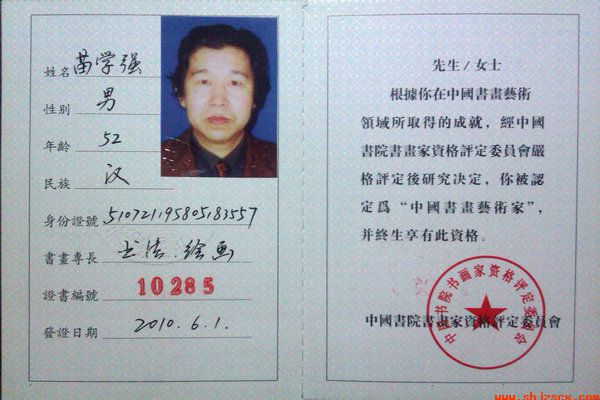 姓名 苗学强
性别 男
年齡 52
民族 汉
身份證號 510721195805183557
書畫專長 书法.绘画
證書編號 10285
發證日期 2010.6.1.
先生/女士
根據你在中國書畫藝術
領域所取得的成就，經中國
書院書畫家資格評定委員會嚴
格評定後研究决定，你被認
定爲“中國書畫藝術家”，
并終生享有此資格。
中國書院書畫家資格評定委員會
中国书院书画家资格评定委员会
www.shjzscx.com